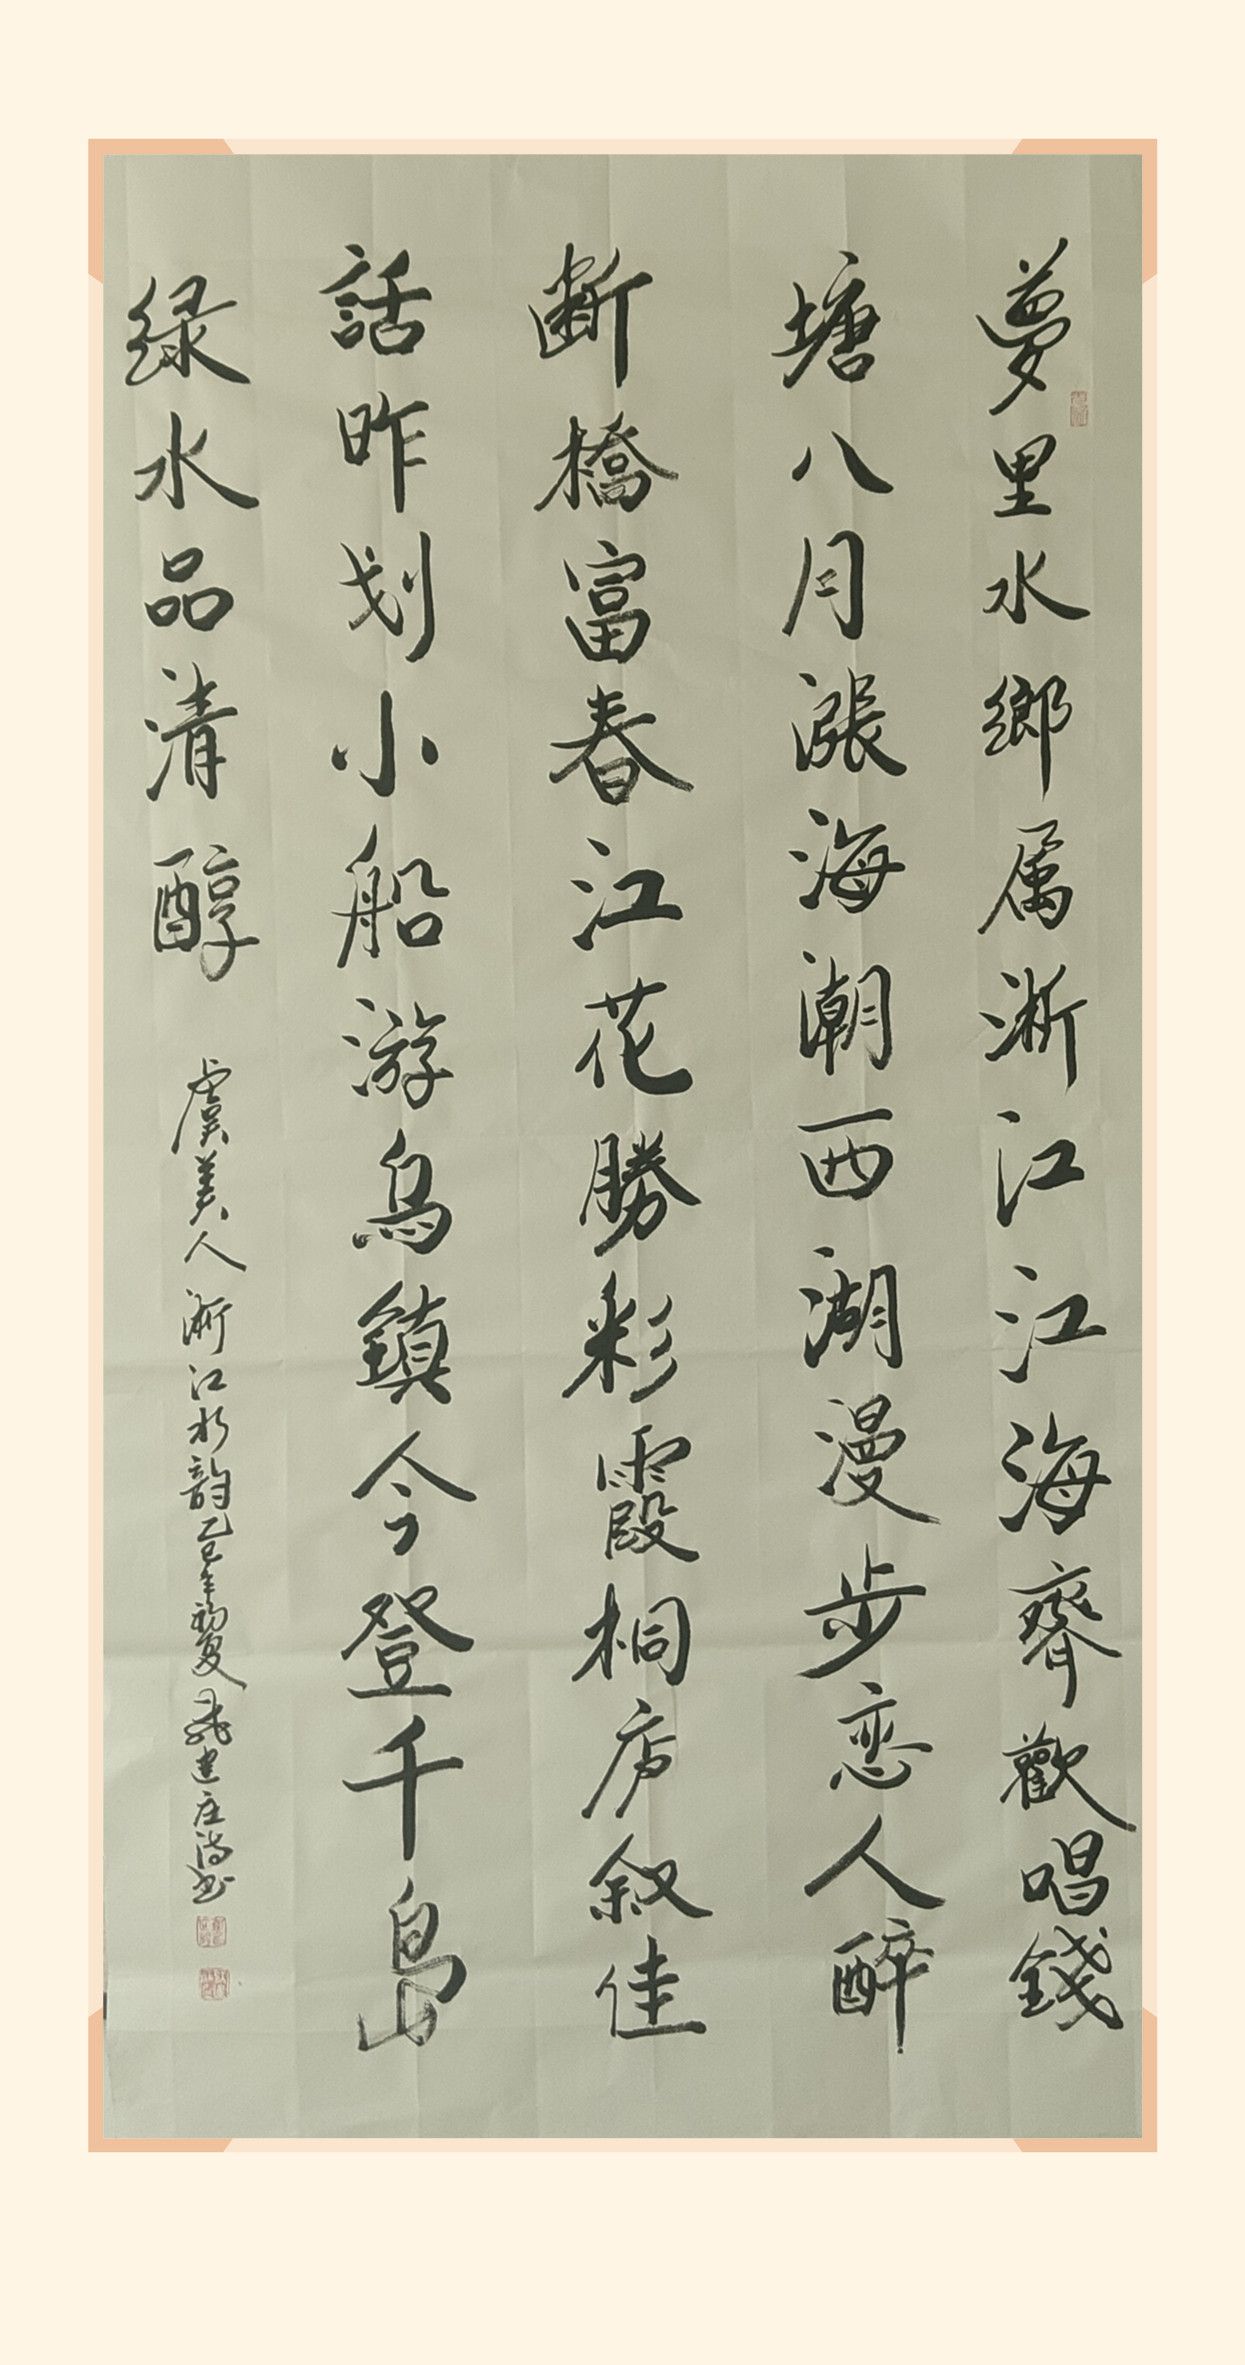 夢里水鄉属淅江江海齊歡唱錢
塘八月漲海潮西湖漫步恋人醉
断橋富春江花勝彩霞桐庐叙佳
話昨划小船游烏鎮今登千島
绿水品清醇
虞美人淅江水韵乙巳年初夏建庄诗书